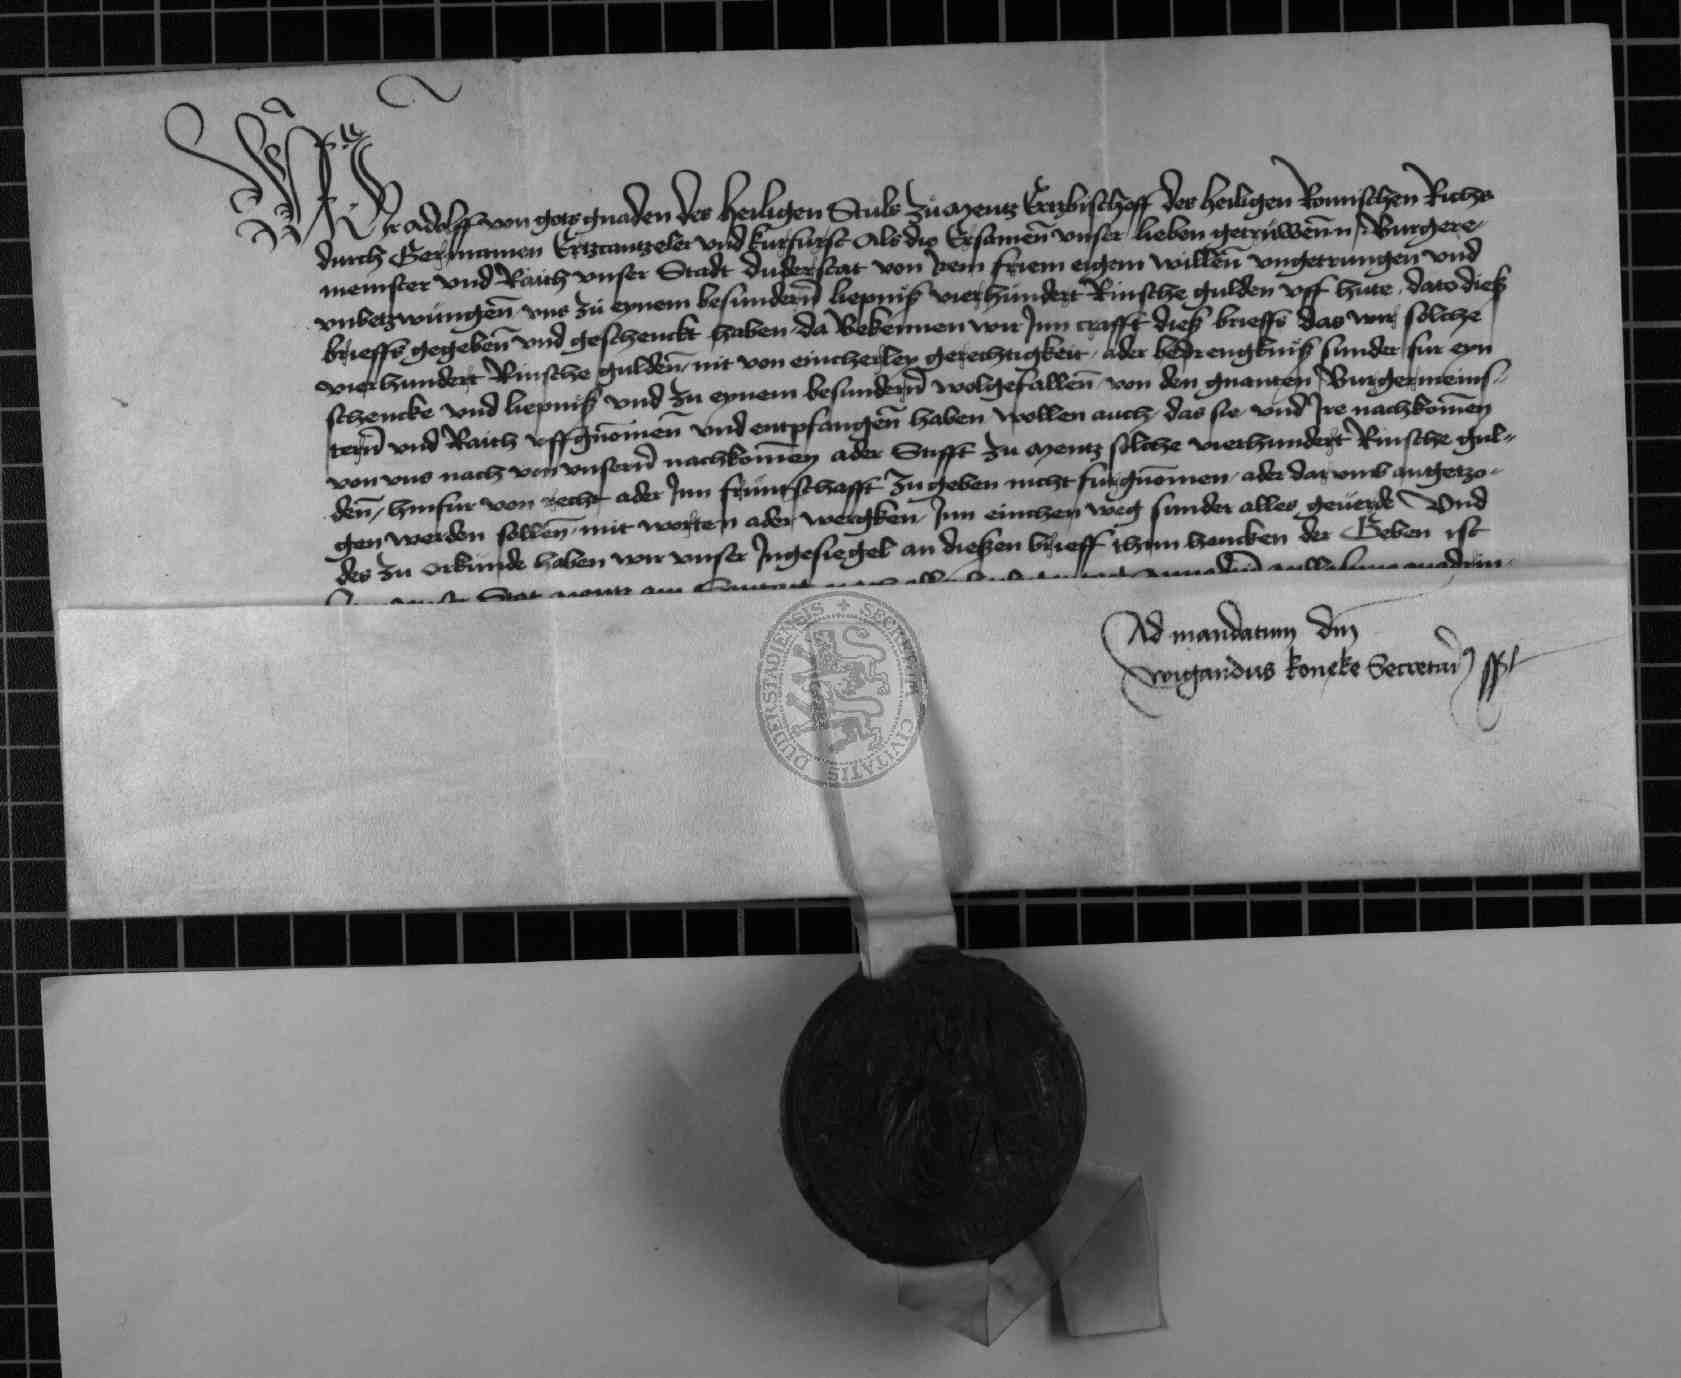 Wir Adolff von gots gnaden des heiligen Stuls zů Mentz Ertzbischoff des heiligen Romischen Richs
durch Germanien Ertzcantzeler vnd kurfurst Als die Ersamen̄ vnser lieben getrůwen̄n Burgere-
meinster vnd Raith vnser Stadt Duderstat von irem friem eigem willen̄ vngetrungen vnd
vnbetzwůngen̄ vns zů eynem besundern̄ liepniß vierhůndert Rinsche gulden vff hůte dato dieß
brieffs gegeben̄ vnd geschenckt haben da Bekennen wir Inn crafft dieß brieffs das wir solche
vierhundert Rinsche gulden̄ nit von eincherley gerechtigkeit ader bedrengkniß sunder fur eyn
schencke vnd liepniß vnd zu eynem besundern̄ wolgefallen̄ von den gnanten Burgermeins-
tern̄ vnd Raith vffgnōmen̄ vnd entpfangen̄ haben wollen auch das sie vnd Jre nachkōmen
von vns nach von vnsern̄ nachkōmen ader Stifft zu Mentz solche vierhundert Rinsche gul-
den̄ hinfur von recht ader Jnn fruntschafft zu geben nicht furgnōmen ader darvmb angetzo-
gen werden sollen̄ mit worten ader wergken Jnn einchen weg sunder alles geuerde Vnd
des zu orkunde haben wir vnser Jngesiegel an dießen brieff thun hencken der Geben ist
Stat Mentz am
Ad mandatum dn̄i
Wigandus koneke Secretari9 sst
SECRETUM CIVITATIS DUDERSTADIENSIS